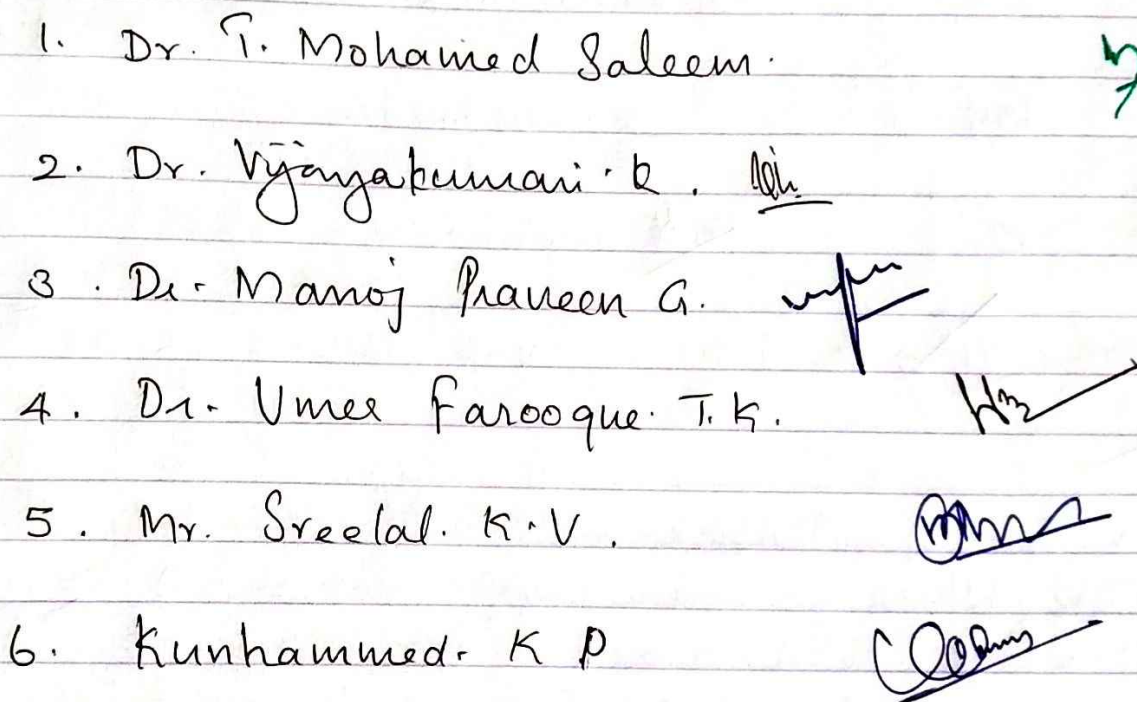 1. Dr. T. Mohamed Saleem.
2. Dr. Vijayakumari. K.
3. Dr. Manoj Praveen G.
4. Dr. Umer Farooque. T.K.
5. Mr. Sreelal. K.V.
6. Kunhammed. K P